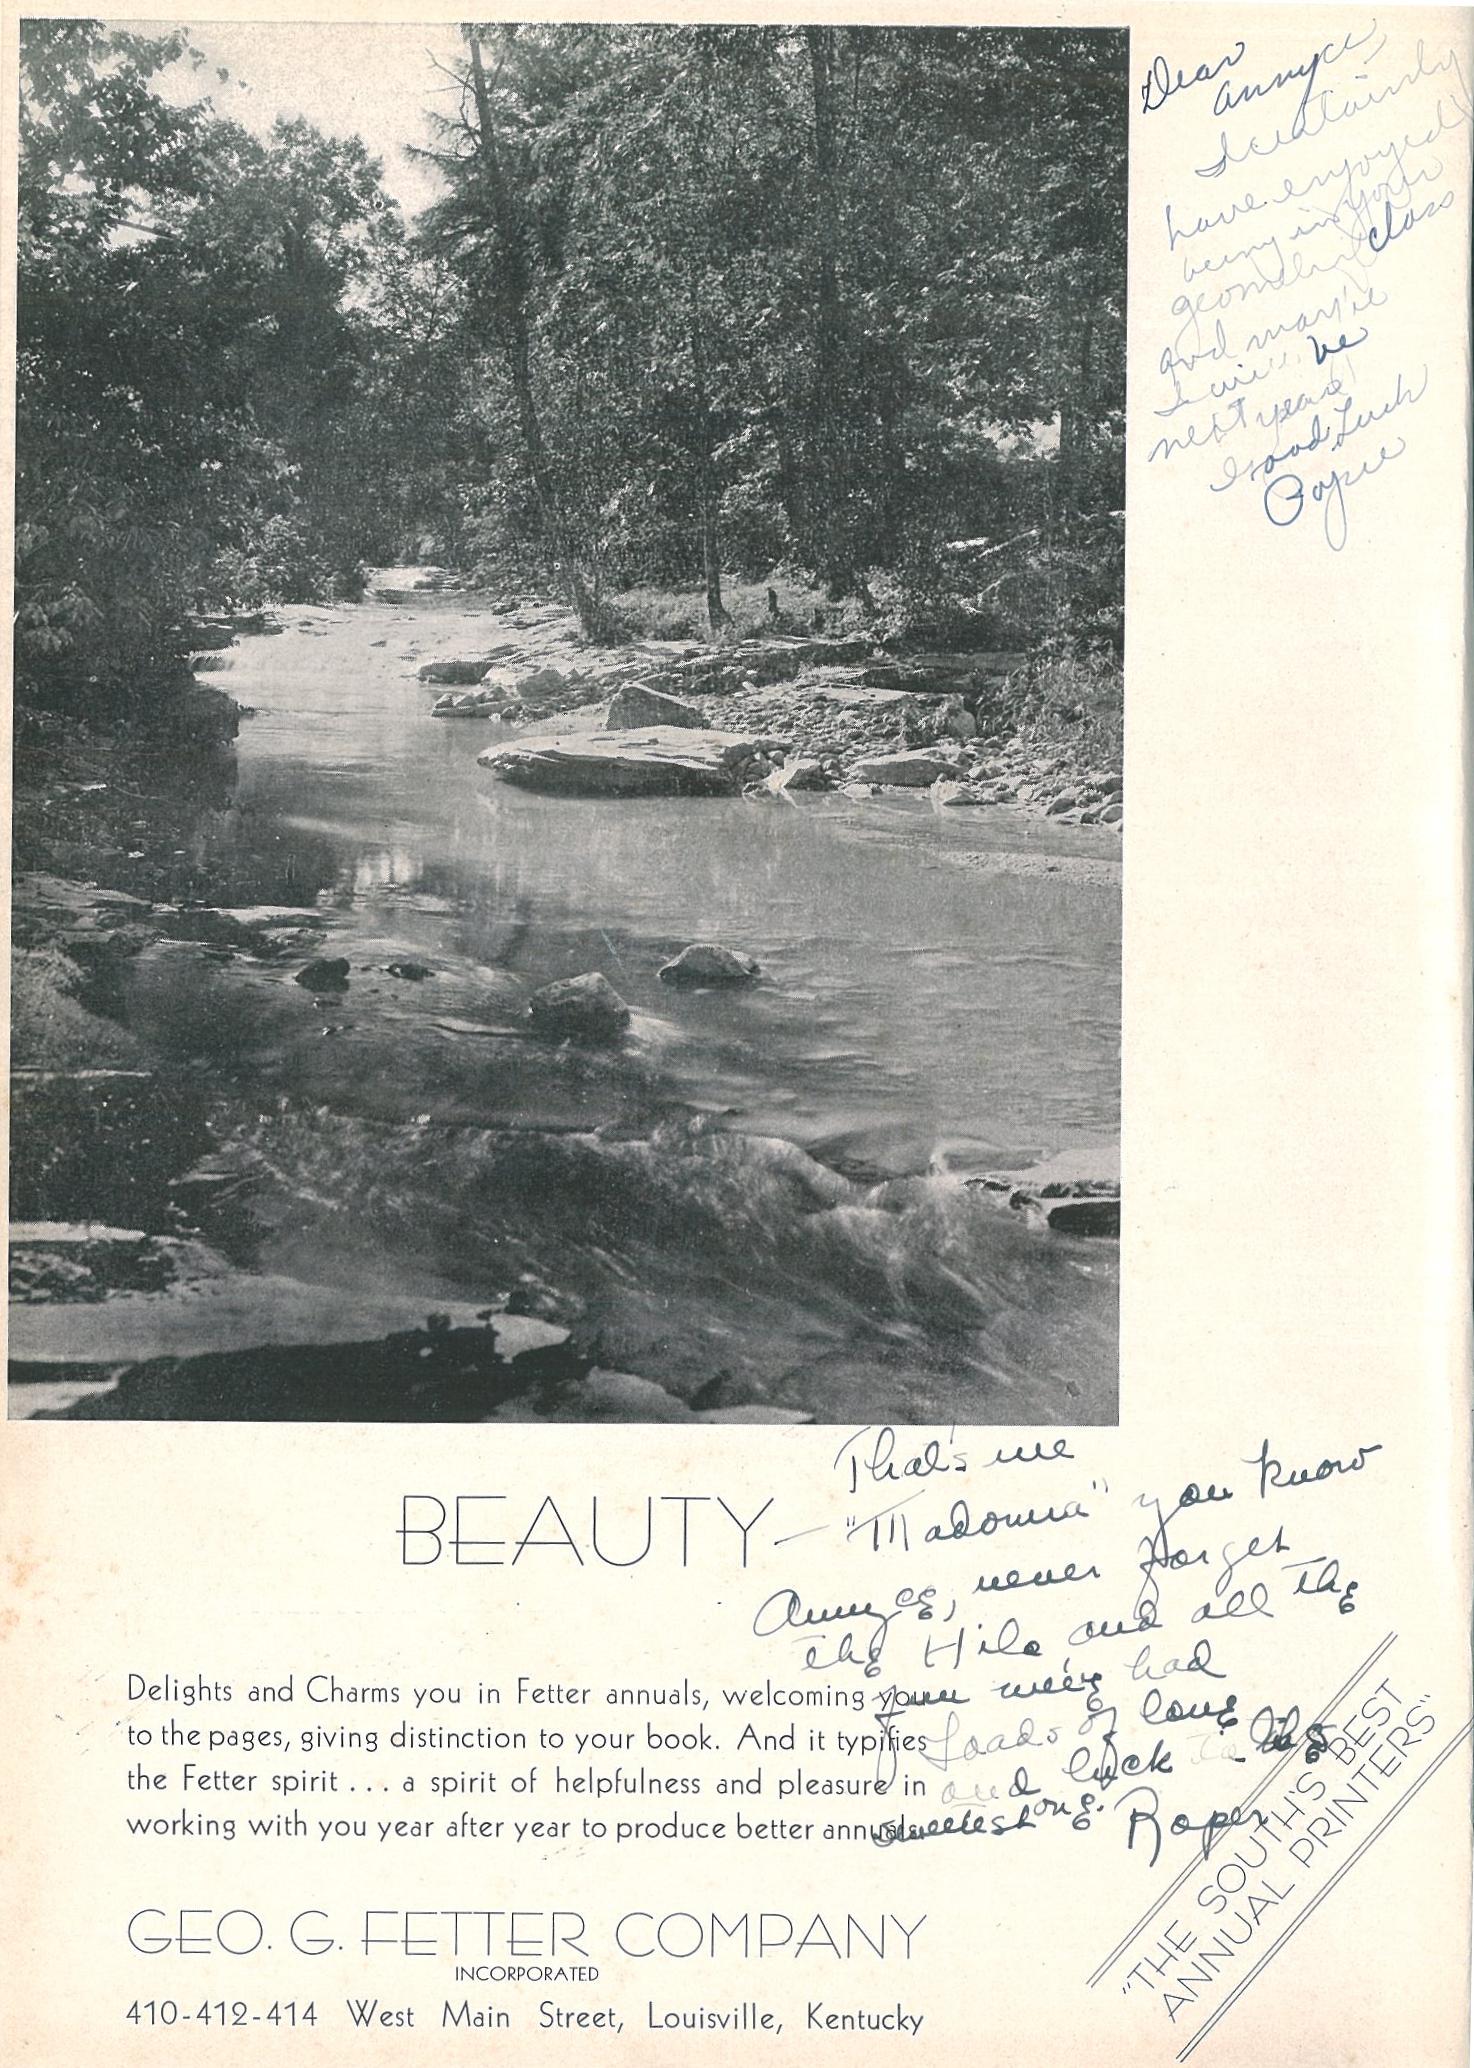 Dear
Annyce,
I certainly
have enjoyed
being in your
geometry class
and maybe
I will be
next year
Good Luck
Popie
That's me
BEAUTY — "Madonna" you know
Annyce, never forget
the Hilo, and all the
fun we've had
Loads of love
and luck to the
sweetest one.
Roper
Delights and Charms you in Fetter annuals, welcoming you
to the pages, giving distinction to your book. And it typifies
the Fetter spirit . . . a spirit of helpfulness and pleasure in
working with you year after year to produce better annuals.
GEO. G. FETTER COMPANY
INCORPORATED
410-412-414 West Main Street, Louisville, Kentucky
"THE SOUTH'S BEST
ANNUAL PRINTERS"